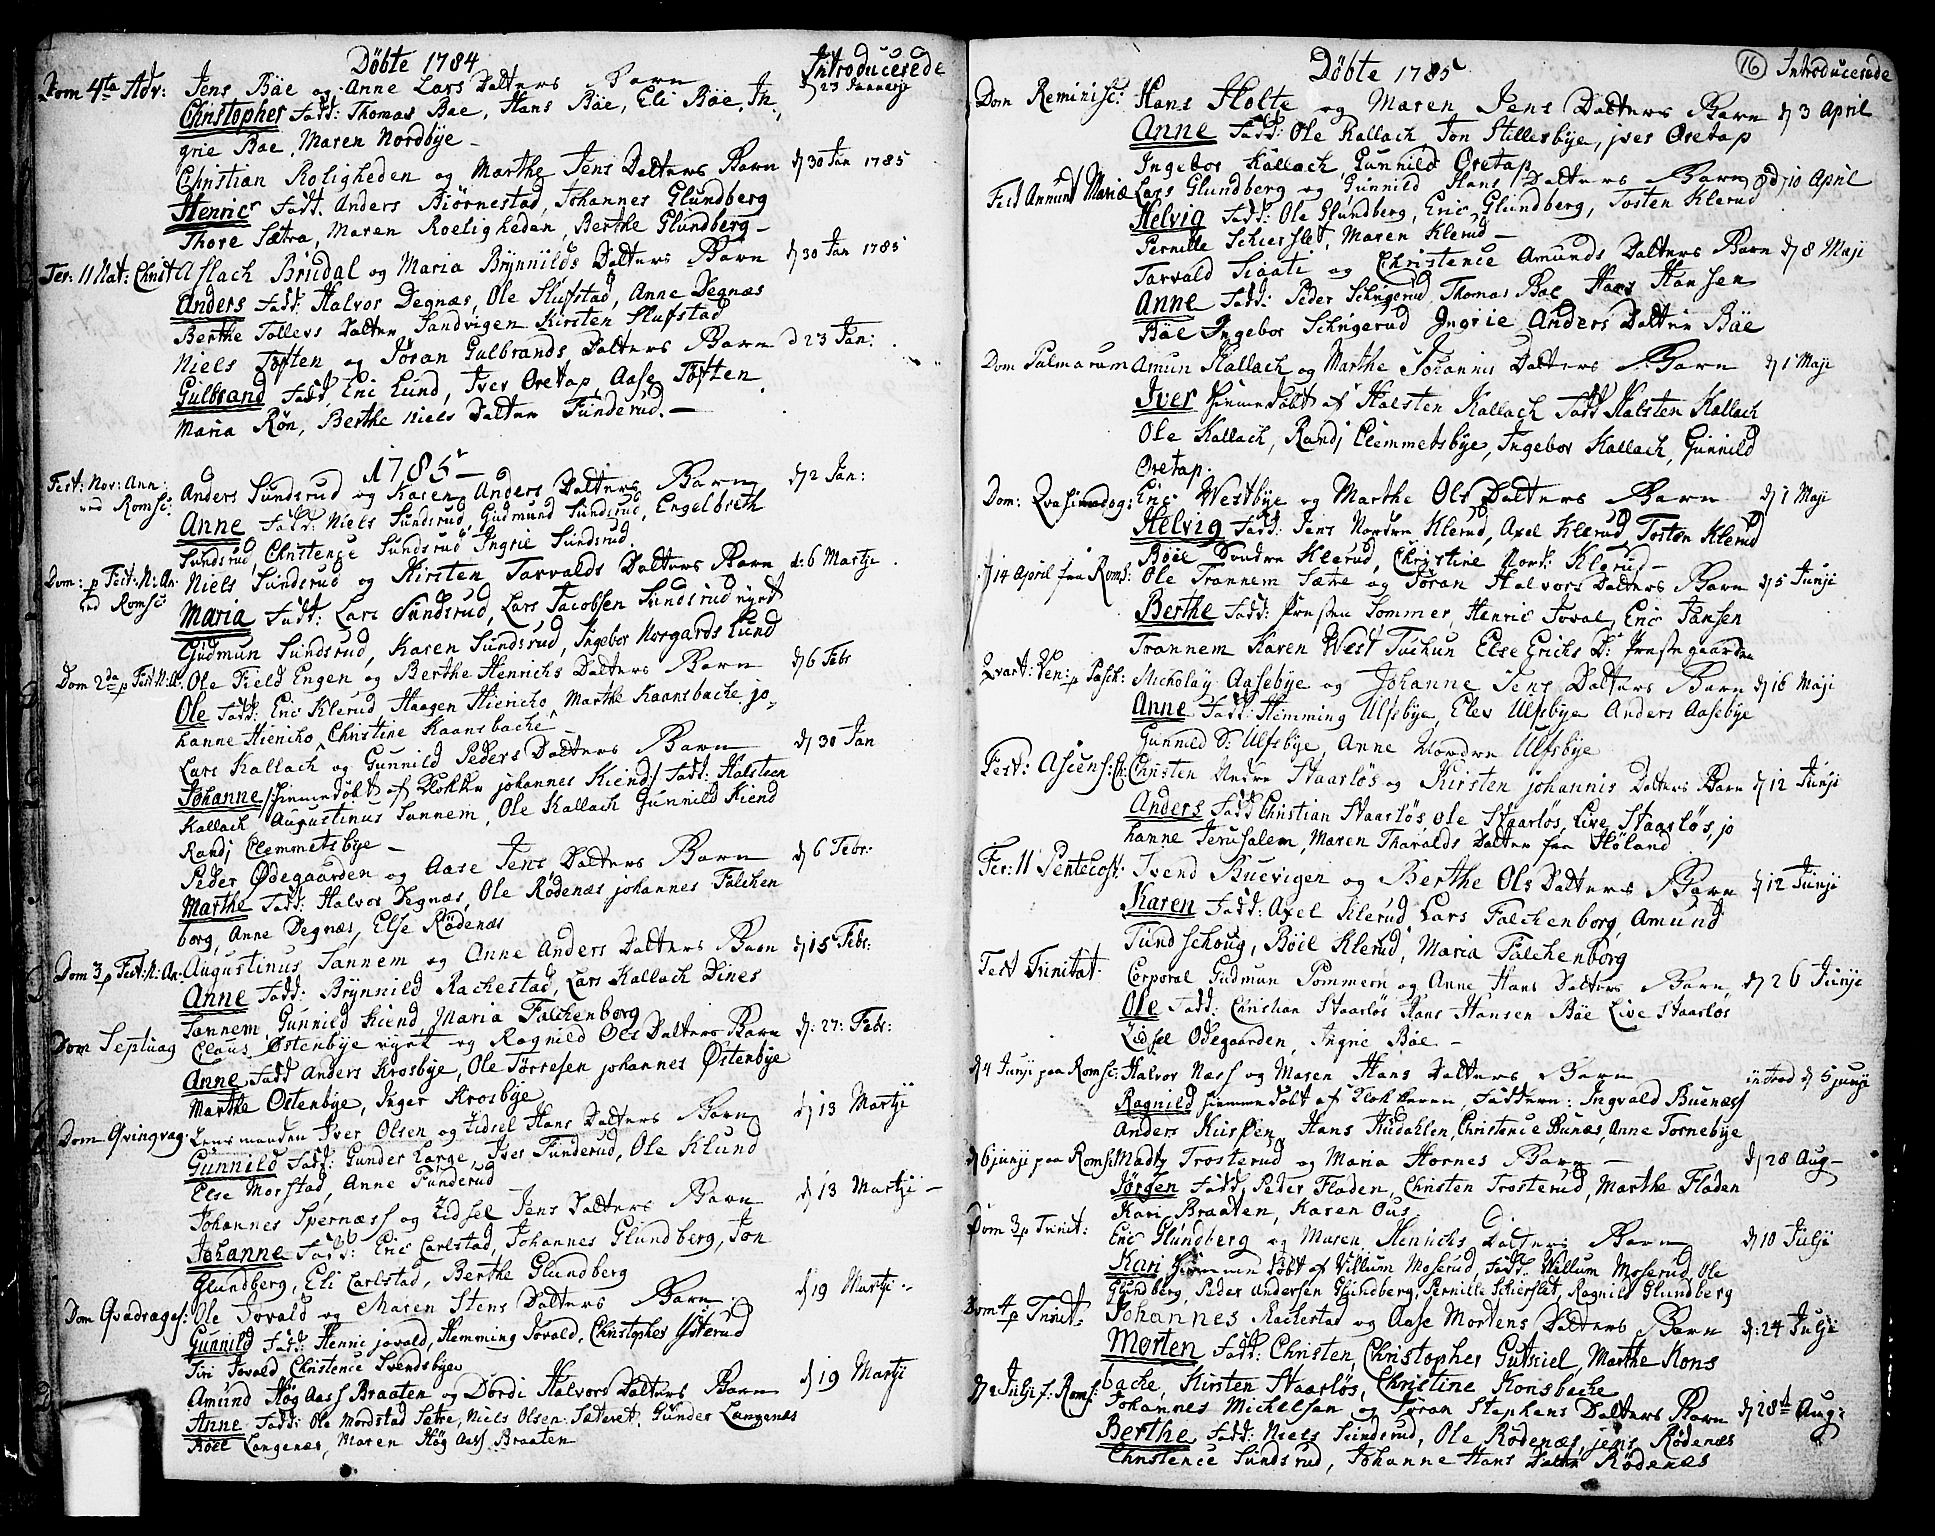 Döbte 1784 Introducerede
Dom 4ta Adv: Jens Böe og Anne Lars Datters Barn d 23 Januarje
Christopher Fadd: Thomas Bøe, Hans Böe, Eli Böe, In-
grie Bøe, Maren Nordbye
Christian Roligheden og Marthe Jens Datters Barn d 30 Jan 1785
Henric Fadd. Anders Biörnestad, Johannes Glundberg
Thore Sætra, Maren Roeligheden, Berthe Glundberg
Fer: 11 Nat: Christ Aslach Brudal og Maria Brynnilds Datters Barn d 30 Jan 1785
Anders Fadd: Halvor Degnæs, Ole Slufstad, Anne Degnæs
Berthe Tollevs Datter Sandvigen Kirsten Slufstad
Niels Toften og Jöran Gulbrands Datters Barn d 23 Jan:
Gulbrand Fadd Eric Lund, Iver Oretap, Aase Toften
Maria Rön, Berthe Niels Datter Funderud.
1785
Fest: Nov: Ann: Anders Sundsrud og Karen Anders Datters Barn d 2 Jan:
ved Romsc: Anne Fadd: Niels Sundsrud, Gudmund Sundsrud, Engelbreth
Sundsrud, Christence Sundsrud Ingrie Sundsrud.
Dom: p Fest: N: An: Niels Sundsrud og Kirsten Tarvalds Datters Barn d: 6 Martje
ved Romsc: Maria Fadd: Lars Sundsrud, Lars Jacobsen Sundsrud nyst
Gudmun Sundsrud, Karen Sundsrud, Ingebor Norgards Lund
Dom 2da p Fest: N: A: Ole Field Engen og Berthe Henrichs Datters Barn d 6 Febr
Ole Fadd: Eric Klerud Haagen Hiencko, Marthe Kaansbache, jo-
hanne Hiencko, Christine Kaansbache
Lars Kallach og Gunnild Peders Datters Barn d 30 Jan
Johanne /hiemmedöbt af Klokker johannes Kiend/ Fadd: Halsteen
Kallach Augustinus Sannem, Ole Kallach Gunnild Kiend
Randj Clemmetsbye
Peder Ödegaarden og Aase Jens Datters Barn d 6 Febr:
Marthe Fadd: Halvor Degnæs, Ole Rödenæs johannes Falchen
borg, Anne Degnæs, Else Rödenæs
Dom 3 p Fest: N: An: Augustinus Sannem og Anne Anders Datters Barn d 15 Febr:
Anne Fadd: Brynnild Rachestad, Lars Kallach Dines
Sannem, Gunnild Kiend, Maria Falchenborg
Dom Septuag Claus Østenbye nyst og Ragnild Ols Datters Barn d: 27: Febr:
Anne Fadd Anders Krosbye, Ole Törresen johannes Østenbye
Marthe Ostenbye, Inger Krosbye
Dom Qvinqvag: Lensmanden Iver Olsen og Zidsel Hans Datters Barn d 13 Martji
Gunnild Fadd: Gunder Large, Iver Funderud, Ole Klund
Else Morstad, Anne Funderud
Johannes Spernæss og Zidsel Jens Datters Barn d 13 Martji
Johanne Fadd: Eric Carlstad, Johannes Glundberg, Jon
Glundberg, Eli Carlstad, Berthe Glundberg
Dom Qvadrages: Ole Jovald og Maren Stens Datters Barn d 19 Martji
Gunnild Fadd: Henric jovald, Hemming Jovald, Christopher Ysterud
Siri Jovald Christence Svendsbye
Amund Høg Aass Braaten og Dordi Halvors Datters Barn d 19 Martji
Anne Fadd: Ole Mordstad Sætre, Niels Olsen Sæteret, Gunder Langenæs
Böel Langenæs, Maren Høg Aass Braaten
Döbte 1785 16 Introducerede
Dom Reminisc: Hans Holte og Maren Jens Datters Barn d 3 April
Anne Fadd: Ole Kallach, Jon Stillesbye, jver Oretap
Ingebor Kallach, Gunnild Oretap
Fest Annunt Mariæ Lars Glundberg og Gunnild Hans Datters Barn d 10 April
Helvig Fadd: Ole Glundberg, Eric Glundberg, Tosten Klerud
Pernille Schierslet, Maren Klerud
Tarvald Sigati og Christence Amunds Datters Barn d 8 Maji
Anne Fadd: Peder Schygerud Thomas Bøe Hans Hansen
Böe Ingebor Schygerud Ingrie Anders Datter Böe
Dom Palmarum Amun Kallach og Marthe Johannis Datters Barn d 1 Maji
Iver hiemmedöbt af Halsten Kallach Fadd Halsten Kallach
Ole Kallach, Randj Clemmetsbye, Ingebor Kallach, Gunnild
Oretap.
Dom: Qvasimodog: Eric Westbye og Marthe Ols Datters Barn d 1 Maji
Helvig Fadd: Jens Nordre Klerud, Axel Klerud, Tosten Klerud
Böel Søndre Klerud, Christine Nord: Klerud
d 14 April fra Roms: Ole Trannem Sætre og Jöran Halvors Datters Barn d 5 Junji
Berthe Fadd: Presten Sommer, Henric Joval, Eric Jansen
Trannem Karen West Tuchun Else Erichs D: Prestegaarden
Qvart: Ven: p Pasch: Nicholay Aasebye og Johanne Jens Datters Barn d 16 Maji
Anne Fadd: Hemming Ulfsbye, Elev Ulfsbye Anders Aasebye
Gunnild S: Ulfsbye, Anne Nordre Ulfsbye
Fest: Ascens: C: Christen Nedre Haarløs og Kirsten johannis Datters Barn d 12 Junji
Anders Fadd Christian Haarløs, ole Haarløs, Live Haarløs, jo
hanne Jerusalem, Maren Tharalds Datter fra Høland
Fer: 11 Pentecost: Svend Buevigen og Berthe Ols Datters Barn d 12 Junji
Karen Fadd: Axel Klerud Lars Falchenborg, Amund
Tundschoug, Böel Klerud, Maria Falchenborg
Fest Trinitat: Corporal Gudmun Pommern og Anne Hans Datters Barn d 26 Junji
Ole Fadd: Christian Haarløs Hans Hansen Böe Live Haarløs
Zidsel Odegaarden, Ingrie Böe
d 4 Junji paa Romsc: Halvor Næss og Maren Hans Datters Barn introd d 5 junji
Ragnild hiemmedöbt af Klokkeren, Fadderne: Ingvald Buenæss
Anders Kirsten, Hans Hudahlen, Christence Bunæs, Anne Tornebye
d 6 junji paa Romsc: Madtz Trosterud og Maria Hornes Barn d 28 Aug
Jörgen Fadd: Peder Fladen, Christen Trosterud, Marthe Fladen
Kari Braaten, Karen Ous.
Dom 3 p Trinit: Eric Glundberg og Maren Henrichs Datters Barn d 10 Julji
Kari hiemmedöbt af Villum Moserud, Fadd: Willum Moserud, Ole
Glundberg, Peder Andersen Glundberg, Pernille Schierslet, Ragnild Glundberg
Dom 4 p Trinit: Johannes Rachestad og Aase Mortens Datters Barn d: 24 Julji
Morten Fadd: Christen, Christopher Gutsiel, Marthe Kons
bache, Kirsten Haarløs, Christine Konsbache
d 2 Julji f: Roms: Johannes Michelsen og Joran Stephens Datters Barn d 28de Aug:
Berthe Fadd: Niels Sundsrud, Ole Rødenæs, jens Rødenæs
Christence Sundsrud, Johanne Hans Datter Rødenæs